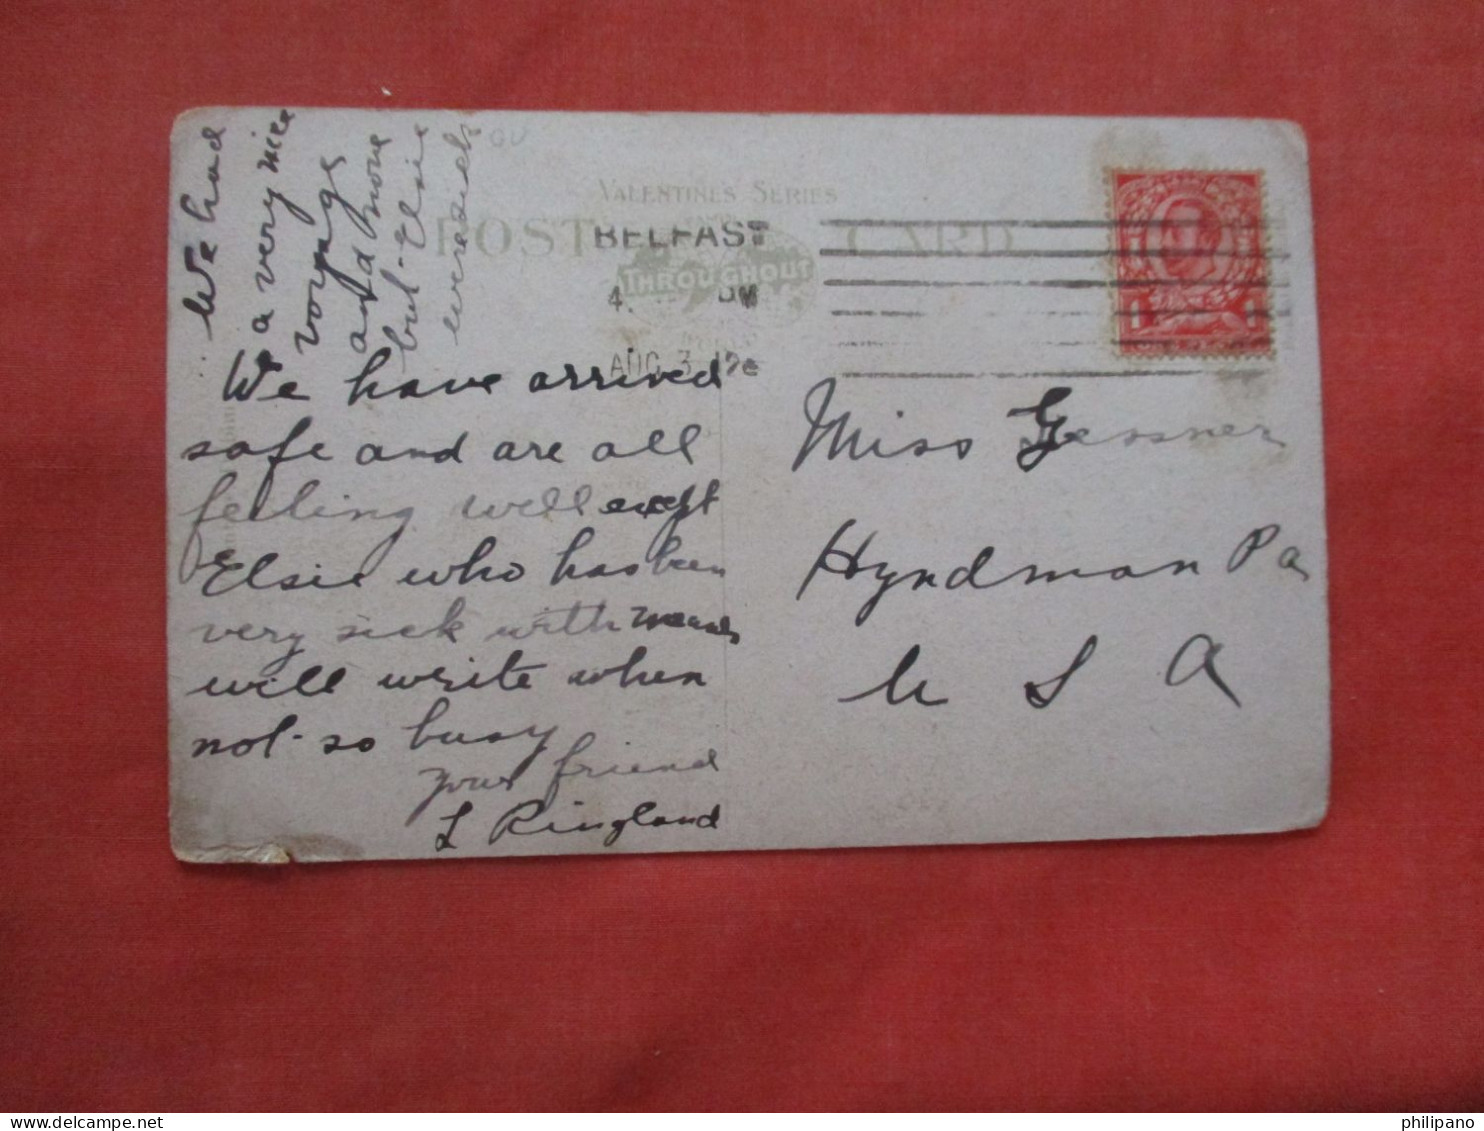 We had
a very nice
voyage
and none
but Elsie
were sick
VALENTINE'S SERIES
POST CARD
BELFAST
THROUGHOUT
4. PM
AUG 3 12
We have arrived
safe and are all
feeling well except
Elsie who has been
very sick with
will write when
not so busy
your friend
L Ringland
Miss Gessner
Hyndman Pa
U S A
1 1
philipano